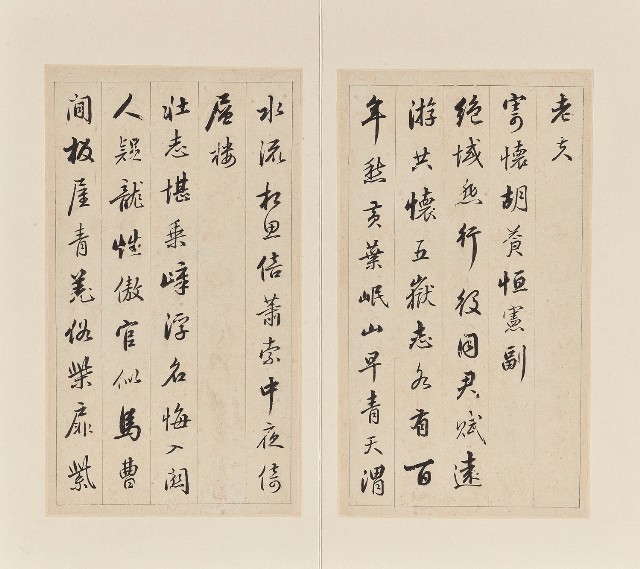 老
寄懷胡恒憲副
絕域行役同君賦遠
游共懷五嶽志各有百
年愁黃葉岷山早青天渭
水流相思倍蕭索中夜倚
層樓
壯志堪乘嶂浮名悔入關
人疑龍性傲官似馬曹
間板屋青羌俗柴扉紫